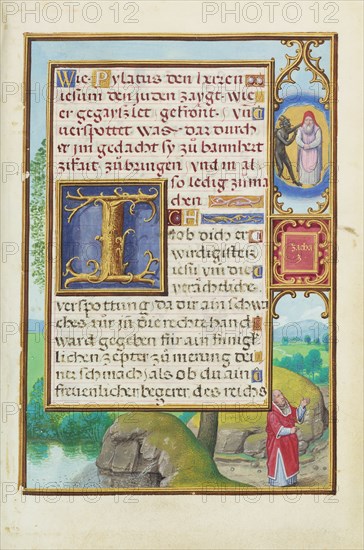 Wie Pylatus den herzen
iesum den juden zaygt wie
er gegayslet gekront vnd
verspottet was dar durch
er jm gedacht sy zu barmhert
zikait zu bringen vnd in al
so ledig zu ma
chen
Ich
lob dich er
wirdigister
iesu vm die
verächtliche
verspottung da dir ain schwa
ches rür jn die rechte hand
ward gegeben für ain künigk
lichen zepter zu merung dei
ner schmach als ob du ain
freuenlicher begerer des reichs
zacha
3